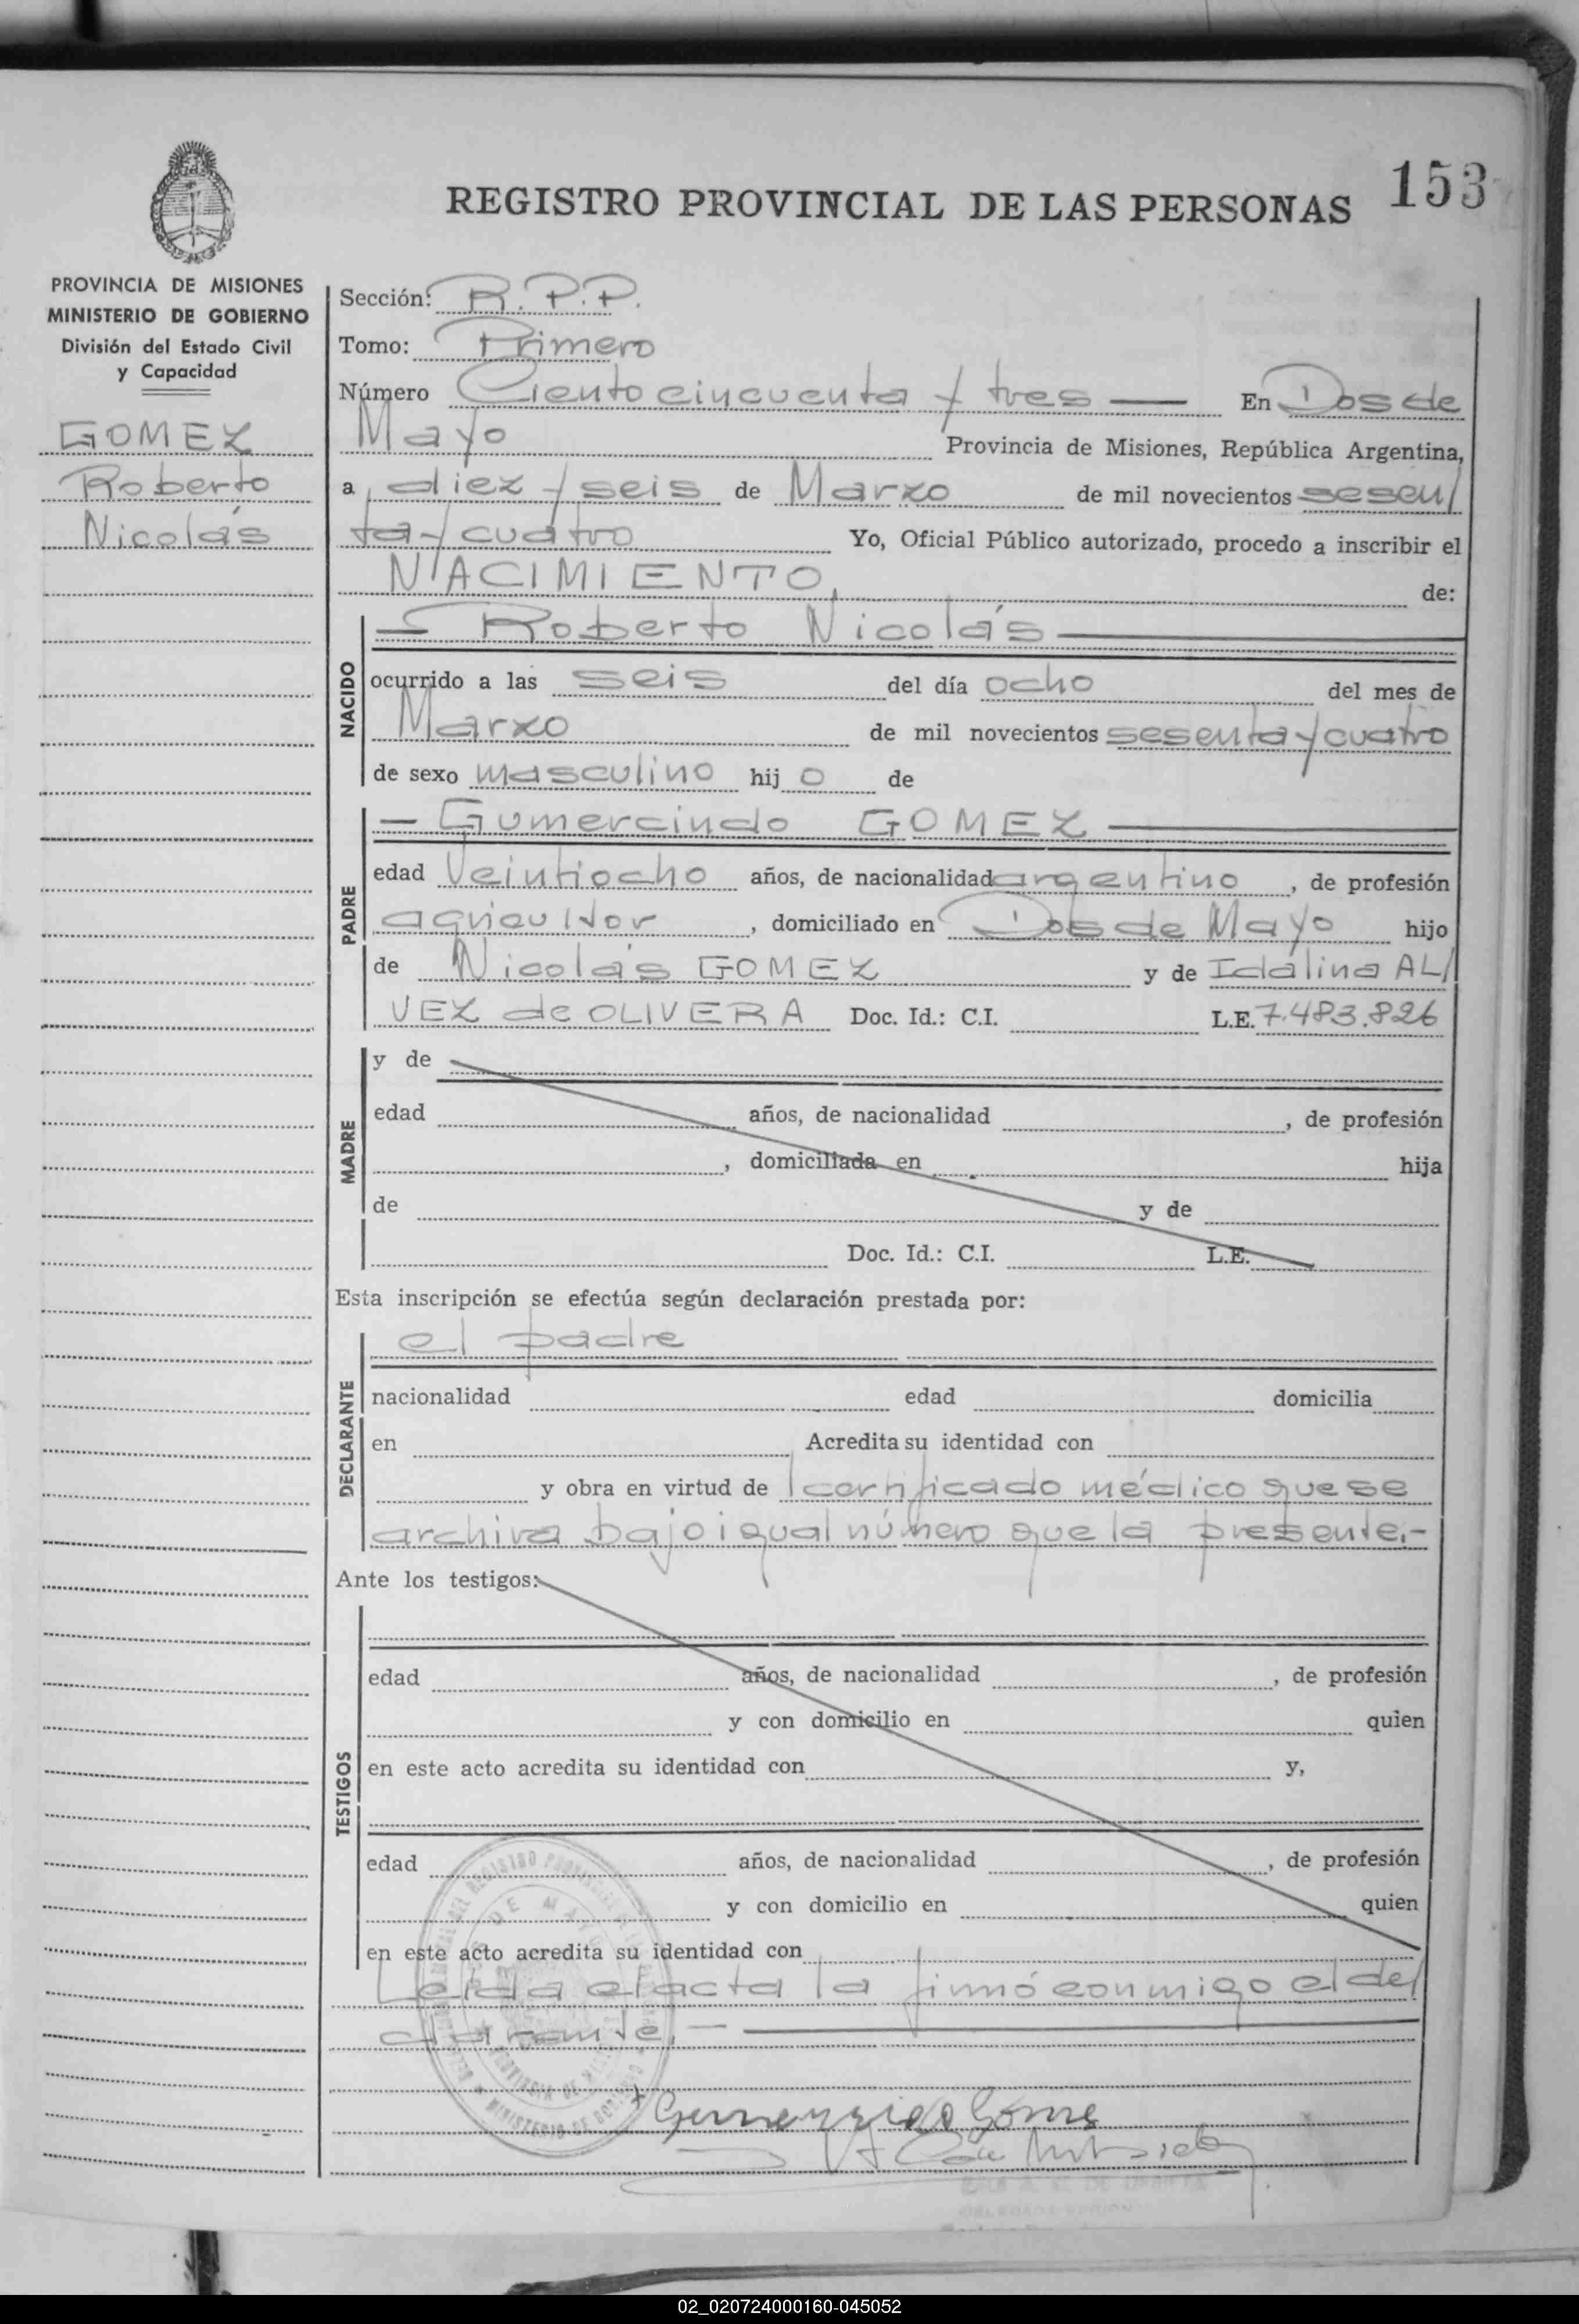 153
REGISTRO PROVINCIAL DE LAS PERSONAS
PROVINCIA DE MISIONES
MINISTERIO DE GOBIERNO
División del Estado Civil
y Capacidad
GOMEZ
Roberto
Nicolás
Sección: R.P.P.
Tomo: Primero
Número Ciento cincuenta y tres — En Dos de
Mayo Provincia de Misiones, República Argentina,
a diez y seis de Marzo de mil novecientos sesen/
ta y cuatro Yo, Oficial Público autorizado, procedo a inscribir el
NACIMIENTO, de:
NACIDO
— Roberto Nicolás —
ocurrido a las seis del día ocho del mes de
Marzo de mil novecientos sesenta y cuatro
de sexo masculino hij o de
PADRE
— Gumercindo GOMEZ —
edad Veintiocho años, de nacionalidad argentino, de profesión
agricultor, domiciliado en Dos de Mayo hijo
de Nicolás GOMEZ y de Idalina AL/
VEZ de OLIVERA Doc. Id.: C.I. L.E. 7.483.826
MADRE
y de
edad años, de nacionalidad , de profesión
, domiciliada en hija
de y de
Doc. Id.: C.I. L.E.
Esta inscripción se efectúa según declaración prestada por:
DECLARANTE
el padre
nacionalidad edad domicilia
en Acredita su identidad con
y obra en virtud de certificado médico que se
archiva bajo igual número que la presente.-
Ante los testigos:
TESTIGOS
edad años, de nacionalidad , de profesión
y con domicilio en quien
en este acto acredita su identidad con y,
edad años, de nacionalidad , de profesión
y con domicilio en quien
en este acto acredita su identidad con
Leída el acta la firmó conmigo el de/
clarante.-
02_020724000160-045052